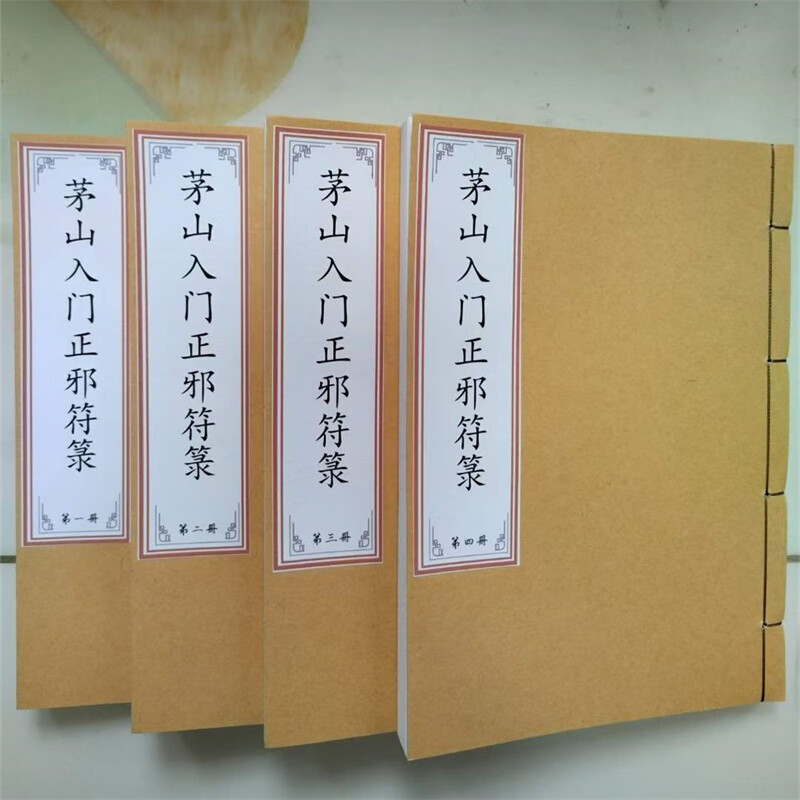 茅山入门正邪符箓
第一册
茅山入门正邪符箓
第二册
茅山入门正邪符箓
第三册
茅山入门正邪符箓
第四册